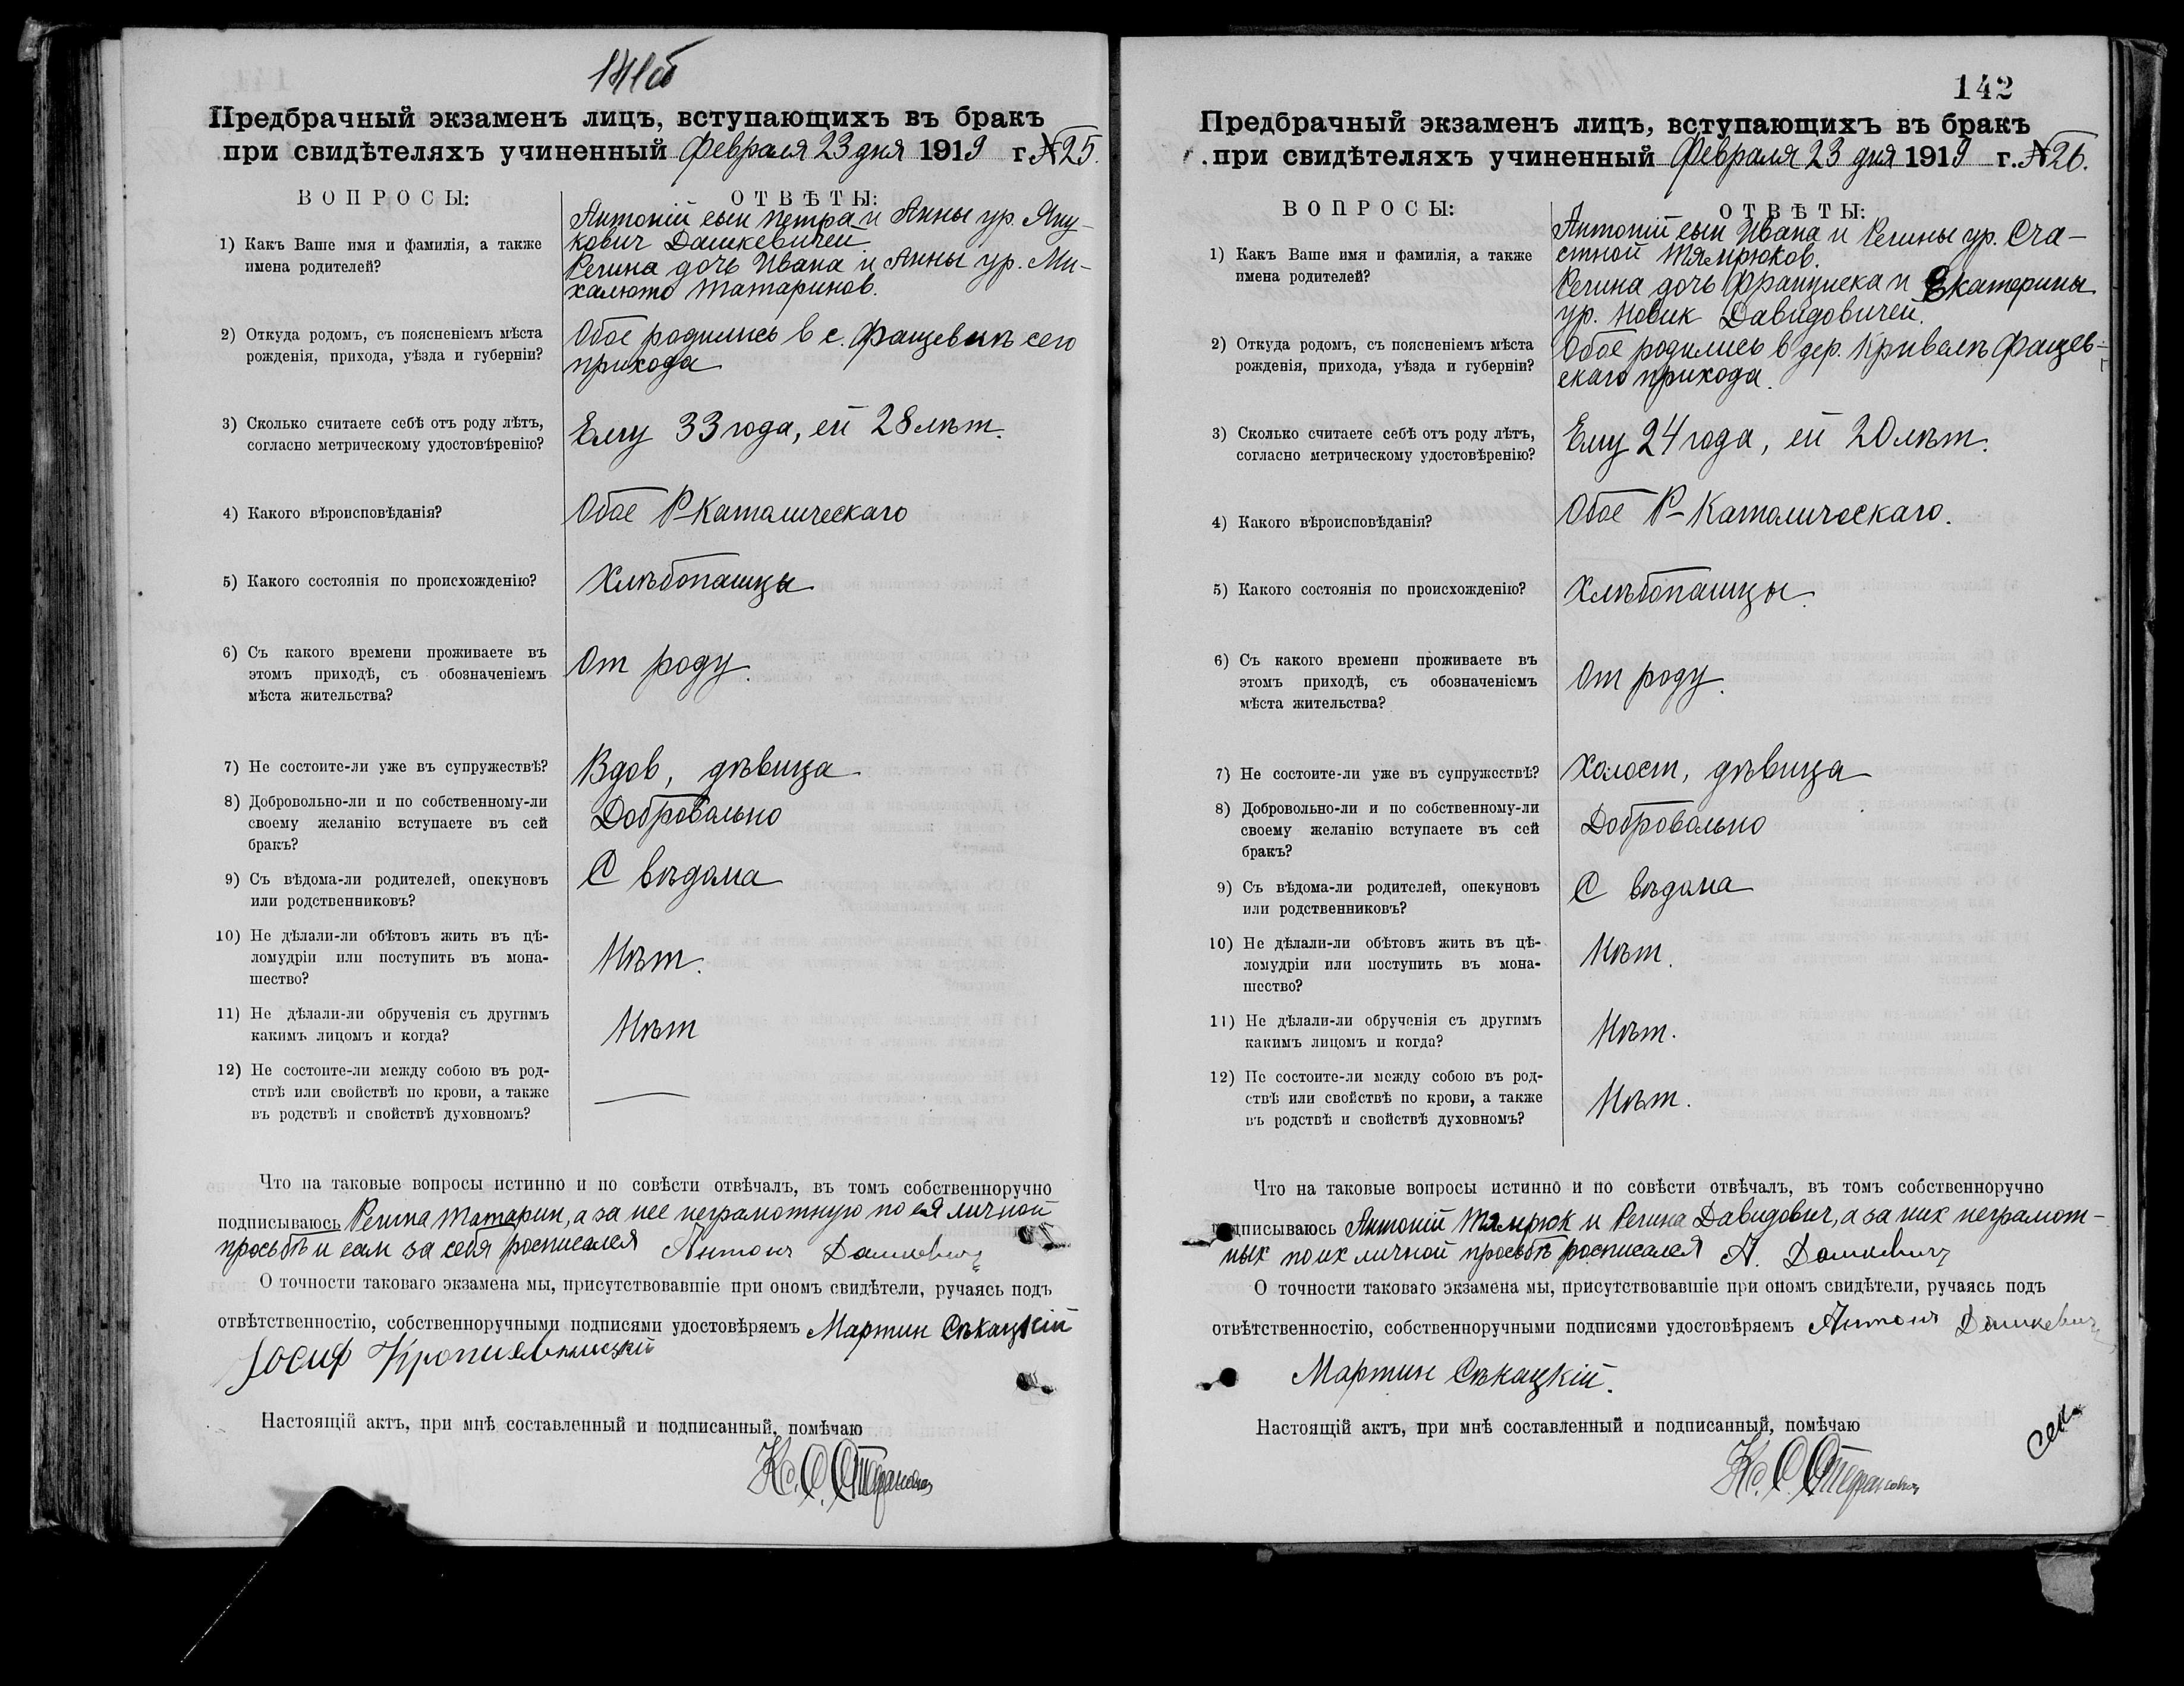 141об
Предбрачный экзаменъ лицъ, вступающихъ въ бракъ
при свидѣтеляхъ учиненный Февраля 23 дня 1919 г. №25.
ВОПРОСЫ:
ОТВѢТЫ:
1) Какъ Ваше имя и фамилія, а также
имена родителей?
Антоній сын Петра и Анны ур. Яну-
кович Дашкевичей.
Регина дочь Ивана и Анны ур. Ми-
халюто Татаринов.
2) Откуда родомъ, съ поясненіемъ мѣста
рожденія, прихода, уѣзда и губерніи?
Обое родились в с. Фащевкѣ сего
прихода
3) Сколько считаете себѣ отъ роду лѣтъ,
согласно метрическому удостовѣренію?
Ему 33 года, ей 28 лѣт.
4) Какого вѣроисповѣданія?
Обое Р-Католическаго
5) Какого состоянія по происхожденію?
Хлѣбопашцы
6) Съ какого времени проживаете въ
этомъ приходѣ, съ обозначеніемъ
мѣста жительства?
От роду.
7) Не состоите-ли уже въ супружествѣ?
Вдов, дѣвица
8) Добровольно-ли и по собственному-ли
своему желанію вступаете въ сей
бракъ?
Добровольно
9) Съ вѣдома-ли родителей, опекуновъ
или родственниковъ?
С вѣдома
10) Не дѣлали-ли обѣтовъ жить въ цѣ-
ломудріи или поступить въ мона-
шество?
Нѣт.
11) Не дѣлали-ли обрученія съ другимъ
какимъ лицомъ и когда?
Нѣт
12) Не состоите-ли между собою въ род-
ствѣ или свойствѣ по крови, а также
въ родствѣ и свойствѣ духовномъ?
—
Что на таковые вопросы истинно и по совѣсти отвѣчалъ, въ томъ собственноручно
подписываюсь Регина Татарин, а за нее неграмотную по ея личной
просьбѣ и сам за себя росписался Антонъ Дашкевич
О точности таковаго экзамена мы, присутствовавшіе при ономъ свидѣтели, ручаясь подъ
отвѣтственностію, собственноручными подписями удостовѣряемъ Мартин Сѣкацкій
Іосиф Кропивницкій
Настоящій актъ, при мнѣ составленный и подписанный, помѣчаю
142
Предбрачный экзаменъ лицъ, вступающихъ въ бракъ
при свидѣтеляхъ учиненный Февраля 23 дня 1919 г. №26.
ВОПРОСЫ:
ОТВѢТЫ:
1) Какъ Ваше имя и фамилія, а также
имена родителей?
Антоній сын Ивана и Регины ур. Сча-
стной Тямрюков.
Регина дочь Франциска и Екатерины
ур. Новик Давидовичей.
2) Откуда родомъ, съ поясненіемъ мѣста
рожденія, прихода, уѣзда и губерніи?
Обое родились в дер. Кривелѣ Фащев-
скаго прихода.
3) Сколько считаете себѣ отъ роду лѣтъ,
согласно метрическому удостовѣренію?
Ему 24 года, ей 20 лѣт.
4) Какого вѣроисповѣданія?
Обое Р-Католическаго.
5) Какого состоянія по происхожденію?
Хлѣбопашцы.
6) Съ какого времени проживаете въ
этомъ приходѣ, съ обозначеніемъ
мѣста жительства?
От роду.
7) Не состоите-ли уже въ супружествѣ?
Холост, дѣвица
8) Добровольно-ли и по собственному-ли
своему желанію вступаете въ сей
бракъ?
Добровольно
9) Съ вѣдома-ли родителей, опекуновъ
или родственниковъ?
С вѣдома
10) Не дѣлали-ли обѣтовъ жить въ цѣ-
ломудріи или поступить въ мона-
шество?
Нѣт.
11) Не дѣлали-ли обрученія съ другимъ
какимъ лицомъ и когда?
Нѣт.
12) Не состоите-ли между собою въ род-
ствѣ или свойствѣ по крови, а также
въ родствѣ и свойствѣ духовномъ?
Нѣт.
Что на таковые вопросы истинно и по совѣсти отвѣчалъ, въ томъ собственноручно
подписываюсь Антоній Тямрюк и Регина Давидович, а за них неграмот-
ных по их личной просьбѣ росписался А. Дашкевич
О точности таковаго экзамена мы, присутствовавшіе при ономъ свидѣтели, ручаясь подъ
отвѣтственностію, собственноручными подписями удостовѣряемъ Антонъ Дашкевич
Мартин Сѣкацкій.
Настоящій актъ, при мнѣ составленный и подписанный, помѣчаю